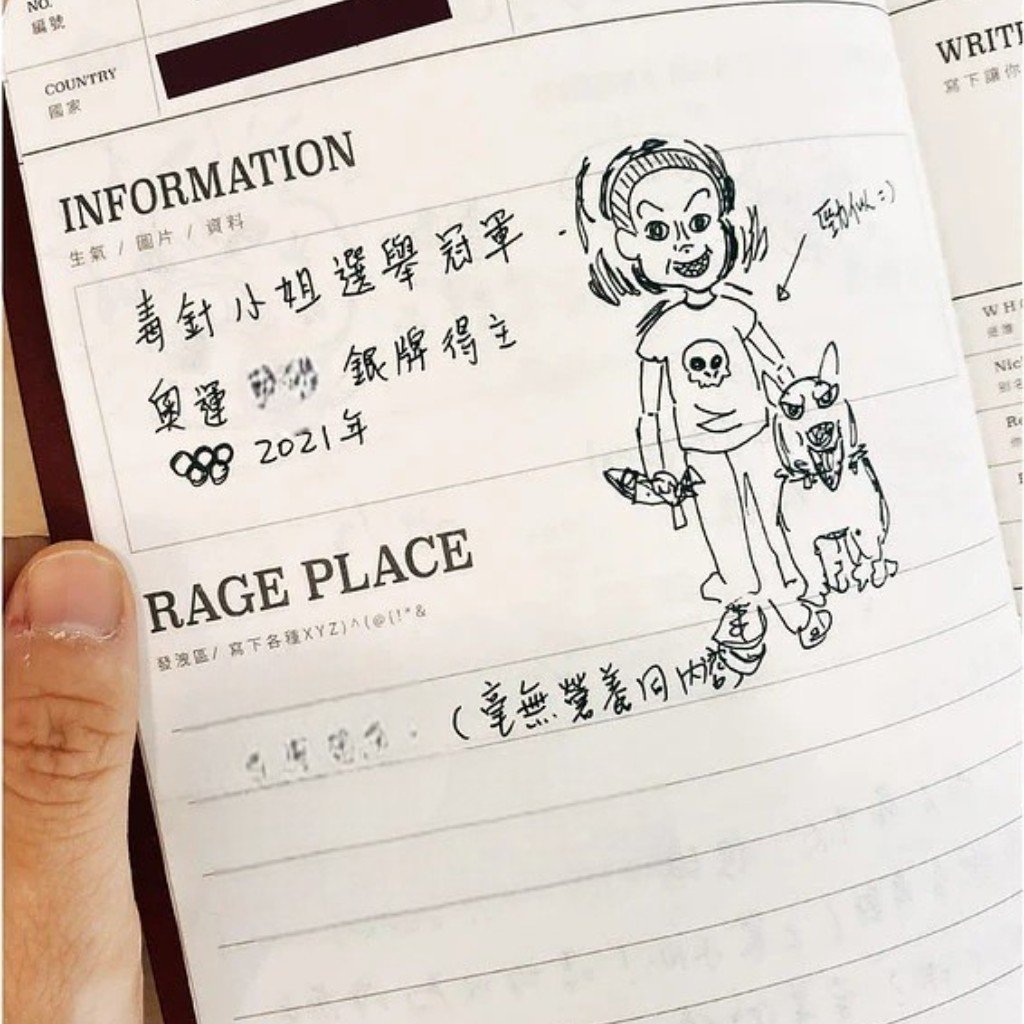 NO.
編號
COUNTRY
國家
INFORMATION
生氣 / 圖片 / 資料
毒針小姐選舉冠軍.
奧運 銀牌得主
2021年
勁似 :)
RAGE PLACE
發洩區/ 寫下各種XYZ)^(@(!*&
(毫無營養同內容)
WRIT
寫下讓你
WH
Nic
別名
R